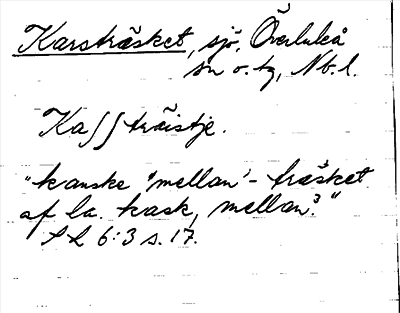 Karsträsket, sjö, Överluleå
sn o. tg, Nb. l.
Ka∫∫träistje.
"kanske 'mellan'-träsket
af la. kask, mellan?"
SL 6:3 s. 17.